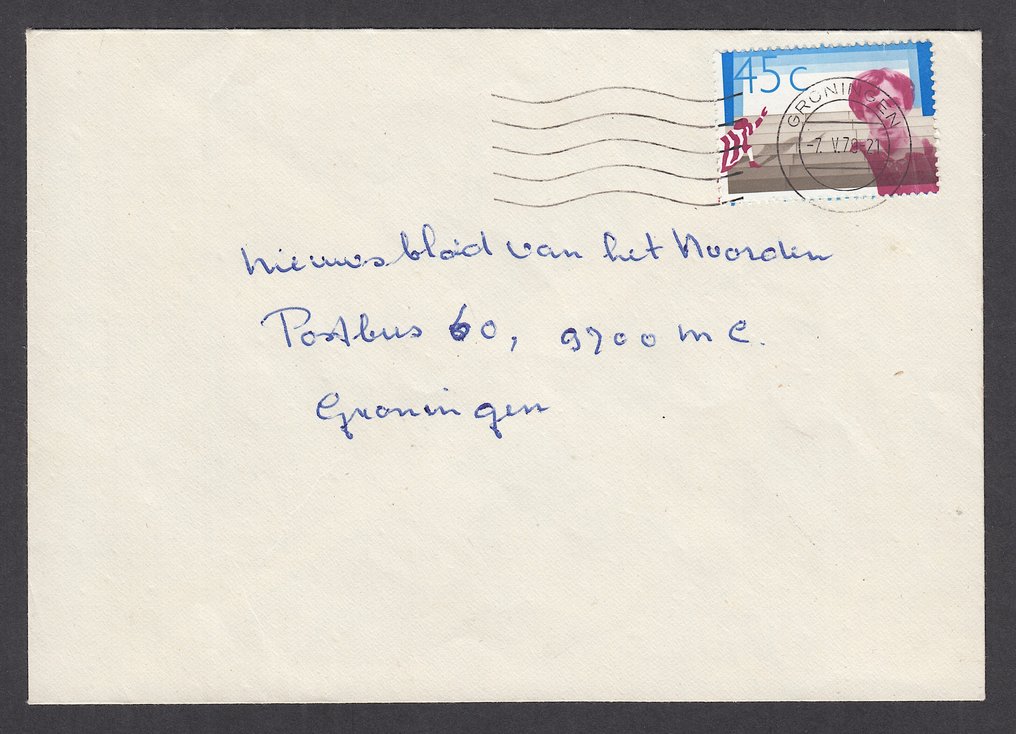 45 c
GRONINGEN
-7. V.78-21
Nieuwsblad van het Noorden
Postbus 60, 9700 MC.
Groningen